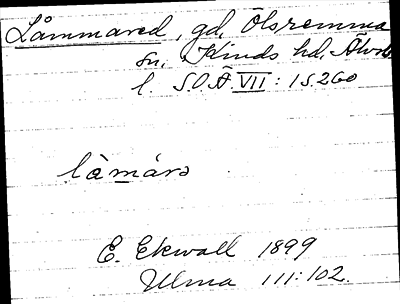 Låmmared, gd, Ölsremma
sn, Kinds hd, Älvsb.
l. SOÄ. VII: 1 S. 260
làmárə
E. Ekwall 1899
Ulma 111:102.